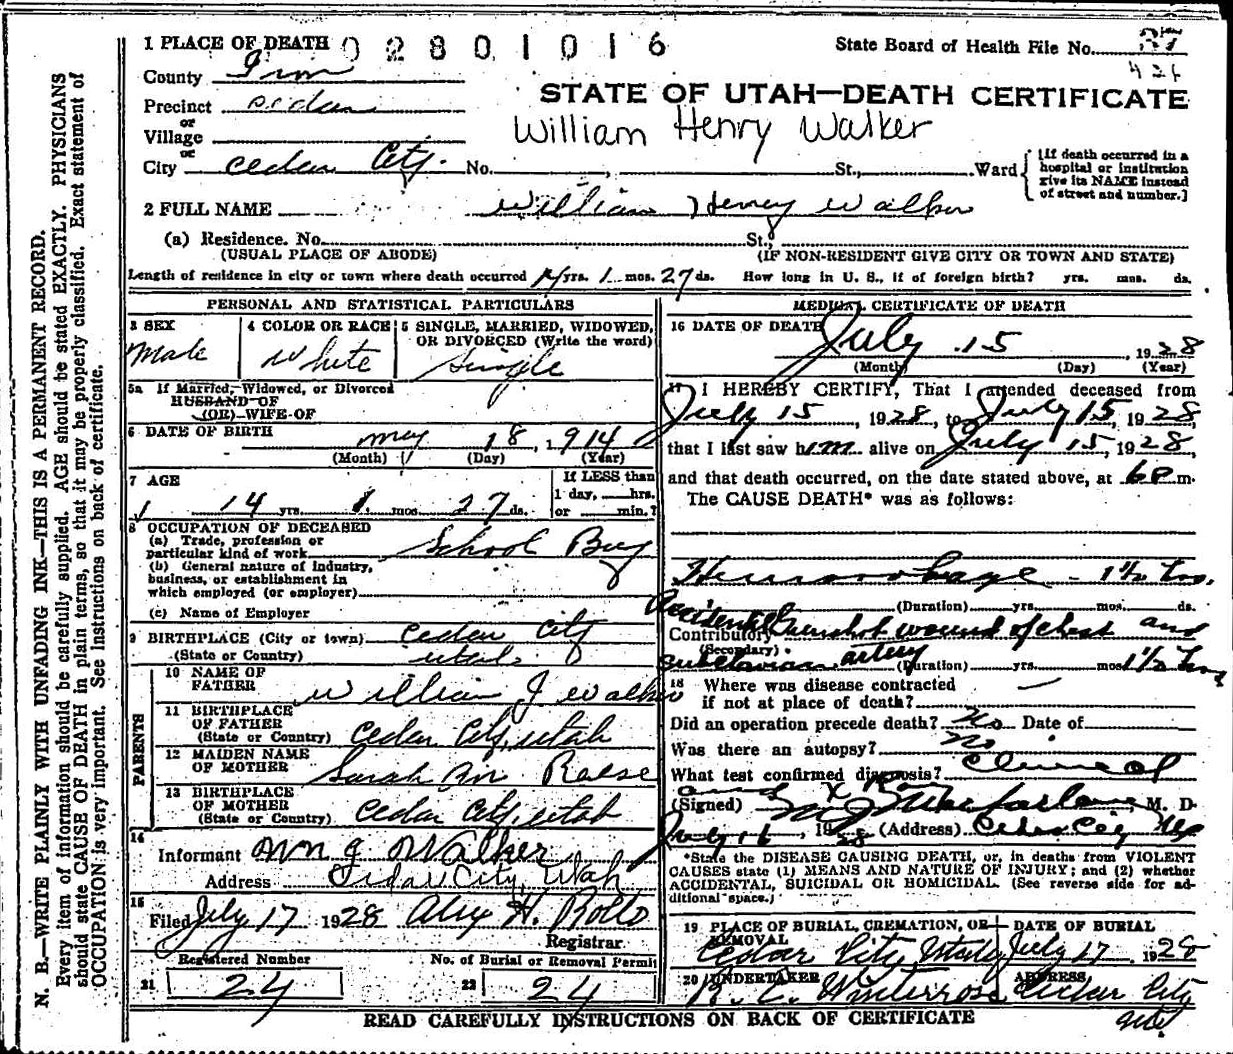 1 PLACE OF DEATH 02801016
State Board of Health File No.
County Iron
426
Precinct Cedar
STATE OF UTAH—DEATH CERTIFICATE
or
Village
William Henry Walker
or
City Cedar City. No. , St., Ward
[If death occurred in a
hospital or institution
give its NAME instead
of street and number.]
2 FULL NAME William Henry Walker
(a) Residence. No. St.,
(USUAL PLACE OF ABODE) (IF NON-RESIDENT GIVE CITY OR TOWN AND STATE)
Length of residence in city or town where death occurred 14 yrs. 1 mos. 27 ds. How long in U. S., if of foreign birth? yrs. mos. ds.
PERSONAL AND STATISTICAL PARTICULARS
3 SEX
Male
4 COLOR OR RACE
White
5 SINGLE, MARRIED, WIDOWED,
OR DIVORCED (Write the word)
Single
5a If Married, Widowed, or Divorced
HUSBAND OF
(OR) WIFE OF
6 DATE OF BIRTH May 18, 1914
(Month) (Day) (Year)
7 AGE
14 yrs. 1 mos. 27 ds.
If LESS than
1 day, hrs.
or min.?
8 OCCUPATION OF DECEASED
(a) Trade, profession or
particular kind of work School Boy
(b) General nature of industry,
business, or establishment in
which employed (or employer)
(c) Name of Employer
9 BIRTHPLACE (City or town) Cedar City
(State or Country) Utah.
PARENTS
10 NAME OF
FATHER William J Walker
11 BIRTHPLACE
OF FATHER
(State or Country) Cedar City, Utah
12 MAIDEN NAME
OF MOTHER Sarah Ann
13 BIRTHPLACE
OF MOTHER
(State or Country) Cedar City, Utah
14
Informant Wm J Walker
Address Cedar City, Utah
15
Filed July 17 1928 Alex H. Rollo
Registrar.
Registered Number No. of Burial or Removal Permit
21 24 22 24
MEDICAL CERTIFICATE OF DEATH
16 DATE OF DEATH July 15, 1928
(Month) (Day) (Year)
17 I HEREBY CERTIFY, That I attended deceased from
July 15, 1928, to July 15, 1928,
that I last saw him alive on July 15, 1928,
and that death occurred, on the date stated above, at 6 P m.
The CAUSE DEATH* was as follows:
Hemorrhage - 1½ hrs.
(Duration) yrs. mos. ds.
Accidental
Contributory Gunshot wound of chest and
(Secondary)
subclavian artery (Duration) yrs. mos. 1½ hrs
18 Where was disease contracted
if not at place of death?
Did an operation precede death? No Date of
Was there an autopsy? No
What test confirmed diagnosis? Clinical
and X Ray
(Signed) Macfarlane, M. D.
July 16, 1928 (Address) Cedar City
*State the DISEASE CAUSING DEATH, or, in deaths from VIOLENT
CAUSES state (1) MEANS AND NATURE OF INJURY; and (2) whether
ACCIDENTAL, SUICIDAL OR HOMICIDAL. (See reverse side for ad-
ditional space.)
19 PLACE OF BURIAL, CREMATION, OR
REMOVAL
Cedar City Utah
DATE OF BURIAL
July 17 1928
20 UNDERTAKER
ADDRESS
Cedar City
READ CAREFULLY INSTRUCTIONS ON BACK OF CERTIFICATE
N. B.—WRITE PLAINLY WITH UNFADING INK—THIS IS A PERMANENT RECORD.
Every item of information should be carefully supplied. AGE should be stated EXACTLY. PHYSICIANS
should state CAUSE OF DEATH in plain terms, so that it may be properly classified. Exact statement of
OCCUPATION is very important. See instructions on back of certificate.